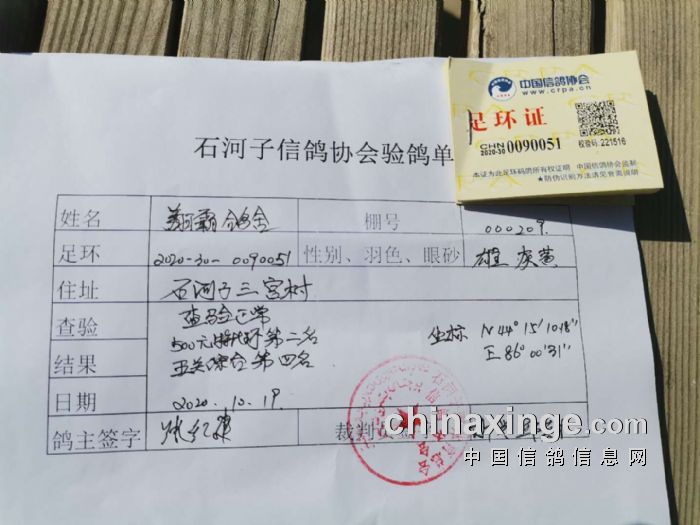 中国信鸽协会
www.crpa.cn
足环证
CHN
2020-30 0090051
校验号: 221516
本证为此足环码鸽所有权证明 中国信鸽协会监制
★防伪识别方法请见背面说明
石河子信鸽协会验鸽单
姓名 鸽舍 棚号 000209
足环 2020-30-0090051 性别、羽色、眼砂 雄 灰 黄
住址 石河子三宫村
查验 查验正常
500元特比环第二名 坐标 N 44° 15' 10.18"
结果 五关综合第四名 E 86° 00' 31"
日期 2020.10.19
鸽主签字 裁判
chinaxinge.com
中国信鸽信息网